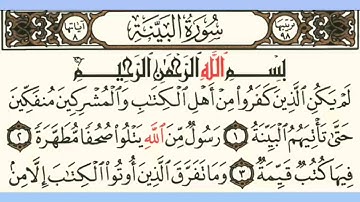 ترتيبها ٩٨ سُورَةُ الْبَيِّنَةِ آياتها ٨
بِسْمِ اللَّهِ الرَّحْمَٰنِ الرَّحِيمِ
لَمْ يَكُنِ الَّذِينَ كَفَرُوا مِنْ أَهْلِ الْكِتَابِ وَالْمُشْرِكِينَ مُنفَكِّينَ
حَتَّىٰ تَأْتِيَهُمُ الْبَيِّنَةُ ١ رَسُولٌ مِّنَ اللَّهِ يَتْلُوا صُحُفًا مُّطَهَّرَةً ٢
فِيهَا كُتُبٌ قَيِّمَةٌ ٣ وَمَا تَفَرَّقَ الَّذِينَ أُوتُوا الْكِتَابَ إِلَّا مِنْ